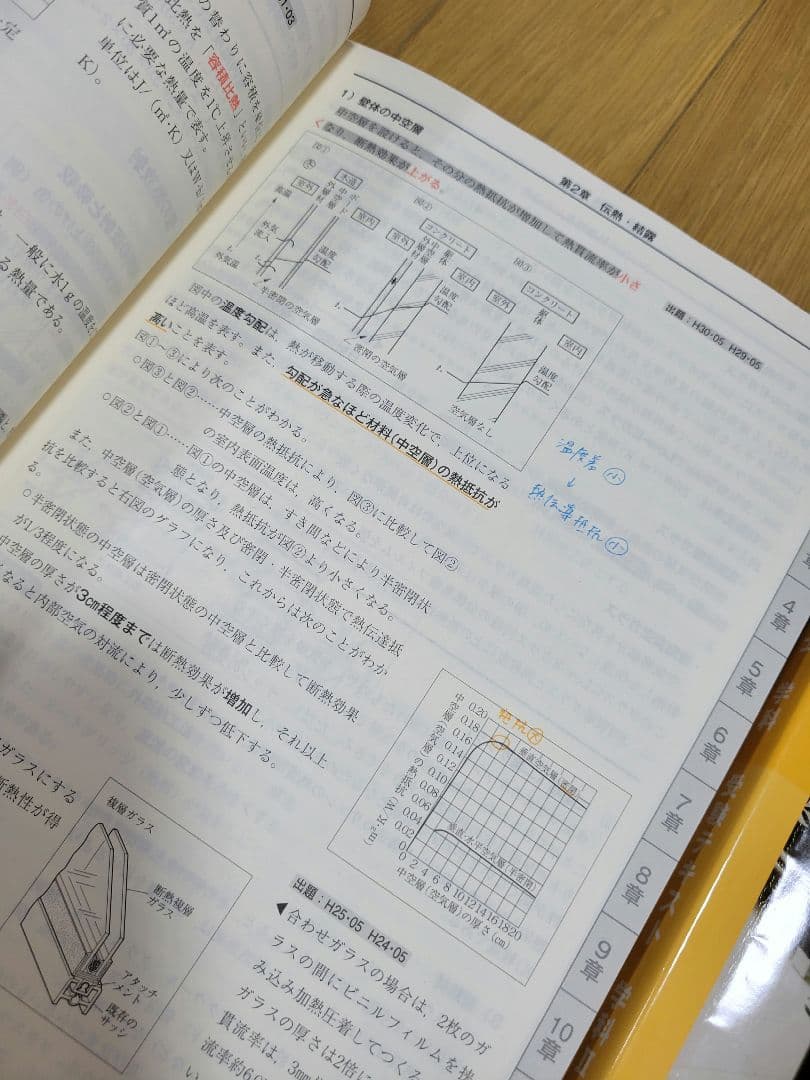 の替わりに容積を
比熱を「容積比熱」とい
質1㎥の温度を1℃上昇させ
に必要な熱量で表す。
単位はJ/(㎥·K)又は
K)。
一般に水1gの温度を
る熱量である。
第2章 伝熱・結露
1) 壁体の中空層
中空層を設けると、その分の熱抵抗が増加して熱貫流率が小さ
くなり、断熱効果が上がる。
出題：H30·05 H29·05
図①
木造
室外
外壁
中空層
ボード
室内
高温
外気
流入
外気温
温度
勾配
半密閉の空気層
図②
コンクリート
室外
外装材
中空層
躯体
室内
温度
勾配
密閉の空気層
図③
コンクリート
室外
躯体
室内
温度
勾配
空気層なし
図中の温度勾配は、熱が移動する際の温度変化で、上位になる
ほど高温を表す。また、勾配が急なほど材料(中空層)の熱抵抗が
高いことを表す。
図①〜③により次のことがわかる。
○図③と図②……中空層の熱抵抗により、図③に比較して図②
の室内表面温度は、高くなる。
○図②と図①……図①の中空層は、すき間などにより半密閉状
態となり、熱抵抗が図②より小さくなる。
また、中空層(空気層)の厚さ及び密閉・半密閉状態で熱伝達抵
抗を比較すると右図のグラフになり、これからは次のことがわか
る。
○半密閉状態の中空層は密閉状態の中空層と比較して断熱効果
が1/3程度になる。
中空層の厚さが3cm程度までは断熱効果が増加し、それ以上
なると内部空気の対流により、少しずつ低下する。
温度差 小
↓
熱伝導抵抗 小
抵抗 大
中空層(空気層)の熱抵抗
(㎡·K/W)
0.20
0.18
0.16
0.14
0.12
0.10
0.08
0.06
0.04
0.02
0
垂直空気層(密閉)
垂直·水平空気層(半密閉)
0 2 4 6 8 10 12 14 16 18 20
中空層(空気層)の厚さ(cm)
ガラスにする
断熱性が得
複層ガラス
断熱複層
ガラス
アタッチ
メント
既存の
サッシ
出題：H25·05 H24·05
◀合わせガラスの場合は、2枚のガ
ラスの間にビニルフィルムを挟
み込み加熱圧着してつくる
ガラスの厚さは2倍に
貫流率は、3mm
流率約6.0
4章
5章
6章
7章
8章
9章
10章